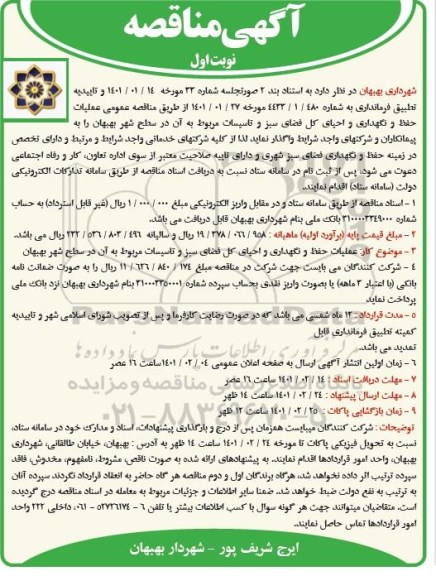 آگهی مناقصه
نوبت اول
شهرداری بهبهان در نظر دارد به استناد بند ۲ صورتجلسه شماره ۳۳ مورخه ۱۴ / ۰۱ / ۱۴۰۱ و تاییدیه
تطبیق فرمانداری به شماره ۴۸۰ / ۱ / ۴۴۳۳ مورخه ۲۷ / ۰۱ / ۱۴۰۱ از طریق مناقصه عمومی عملیات
حفظ و نگهداری و احیای کل فضای سبز و تاسیسات مربوط به آن در سطح شهر بهبهان را به
پیمانکاران و شرکتهای واجد شرایط واگذار نماید لذا از کلیه شرکتهای خدماتی واجد شرایط و مرتبط و دارای تخصص
در زمینه حفظ و نگهداری فضای سبز شهری و دارای تاییه صلاحیت معتبر از سوی اداره تعاون، کار و رفاه اجتماعی
دعوت می شود، پس از ثبت نام در سامانه ستاد نسبت به دریافت اسناد مناقصه از طریق سامانه تدارکات الکترونیکی
دولت (سامانه ستاد) اقدام نمایند.
۱ - اسناد مناقصه از طریق سامانه ستاد و در مقابل واریز الکترونیکی مبلغ ۰۰۰ / ۰۰۰ / ۱ ریال (غیر قابل استرداد) به حساب
شماره ۳۱۰۰۰۰۳۳۴۹۰۰۰ بانک ملی بنام شهرداری بهبهان قابل دریافت می باشد.
۲ - مبلغ قیمت پایه (برآورد اولیه) ماهیانه : ۹۵۸ / ۰۶۶ / ۳۷۸ / ۱۹ ریال و سالیانه ۴۹۶ / ۸۰۳ / ۵۳۶ / ۲۳۲ ریال می باشد.
۳ - موضوع کار: عملیات حفظ و نگهداری و احیای کل فضای سبز و تاسیسات مربوط به آن در سطح شهر بهبهان
۴ - شرکت کنندگان می بایست جهت شرکت در مناقصه مبلغ ۱۷۴ / ۸۴۰ / ۶۲۶ / ۱۱ ریال را به صورت ضمانت نامه
بانکی (با اعتبار ۳ ماهه) یا بصورت واریز نقدی بحساب سپرده شماره ۳۱۰۰۰۰۳۳۵۰۰۰۱ بنام شهرداری بهبهان نزد بانک ملی
پرداخت نماید
۵ - مدت قرارداد : ۱۲ ماه شمسی می باشد که در صورت رضایت کارفرما و پس از تصویب شورای اسلامی شهر و تاییدیه
کمیته تطبیق فرمانداری قابل
تمدید می باشد.
۶ - زمان اولین انتشار آگهی ارسال به صفحه اعلان عمومی ۰۴ / ۰۲ / ۱۴۰۱ساعت ۱۶ عصر
۷ - مهلت دریافت اسناد : ۱۴ / ۰۲ / ۱۴۰۱ ساعت ۱۶ عصر
۸ - مهلت ارسال پیشنهاد : ۲۴ / ۰۲ / ۱۴۰۱ ساعت ۱۴ ظهر
۹ - زمان بازگشایی پاکات : ۲۵ / ۰۲ / ۱۴۰۱ ساعت ۱۲ ظهر
توضیحات : شرکت کنندگان میبایست همزمان پس از درج و بارگذاری پیشنهادات، اسناد و مدارک خود در سامانه ستاد،
نسبت به تحویل فیزیکی پاکات تا مورخه ۲۴ / ۰۲ / ۱۴۰۱ ساعت ۱۴ ظهر به آدرس : بهبهان، خیابان طالقانی، شهرداری
بهبهان، واحد امور قراردادها اقدام نمایند. به پیشنهادهای ارائه شده به صورت ناقص، مشروط، نامفهوم، مخدوش، فاقد
سپرده ترتیب اثر داده نخواهد شد، هرگاه برندگان اول و دوم مناقصه هر گاه حاضر به انعقاد قرارداد نگردند، سپرده آنان
به ترتیب به نفع دولت ضبط خواهد شد. ضمنا سایر اطلاعات و جزئیات مربوط به معامله در اسناد مناقصه درج گردیده
است. متقاضیان میتوانند جهت هر گونه سوال با کسب اطلاعات بیشتر یا تلفن ۶ - ۵۲۷۲۶۱۷۴ - ۰۶۱، داخلی ۲۲۲ واحد
امور قراردادها تماس حاصل نمایند.
ایرج شریف پور - شهردار بهبهان